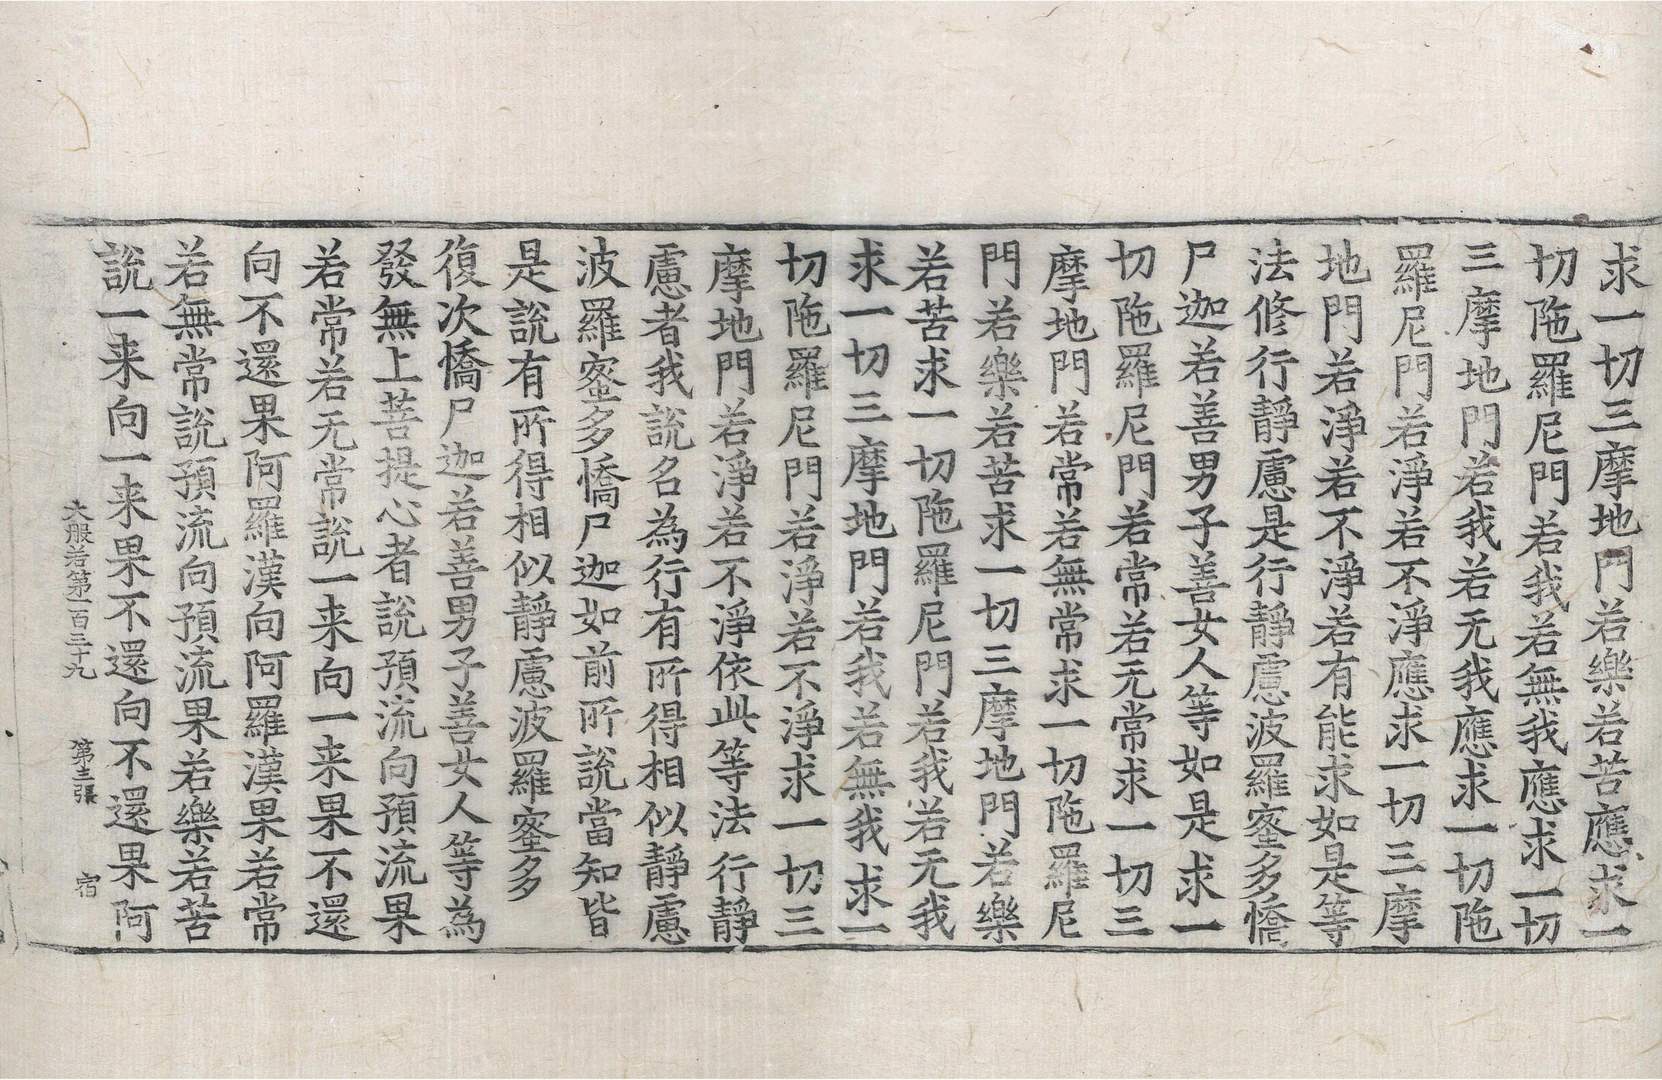 求一切三摩地門若樂若苦應求一
切陁羅尼門若我若無我應求一切
三摩地門若我若无我應求一切陁
羅尼門若淨若不淨應求一切三摩
地門若淨若不淨若有能求如是等
法修行靜慮是行靜慮波羅蜜多憍
尸迦若善男子善女人等如是求一
切陁羅尼門若常若无常求一切三
摩地門若常若無常求一切陁羅尼
門若樂若苦求一切三摩地門若樂
若苦求一切陁羅尼門若我若无我
求一切三摩地門若我若無我求一
切陁羅尼門若淨若不淨求一切三
摩地門若淨若不淨依此等法行靜
慮者我說名為行有所得相似靜慮
波羅蜜多憍尸迦如前所說當知皆
是說有所得相似靜慮波羅蜜多
復次憍尸迦若善男子善女人等為
發無上菩提心者說預流向預流果
若常若无常說一来向一来果不還
向不還果阿羅漢向阿羅漢果若常
若無常說預流向預流果若樂若苦
說一来向一来果不還向不還果阿
大般若第一百三十九 第十三張 宿